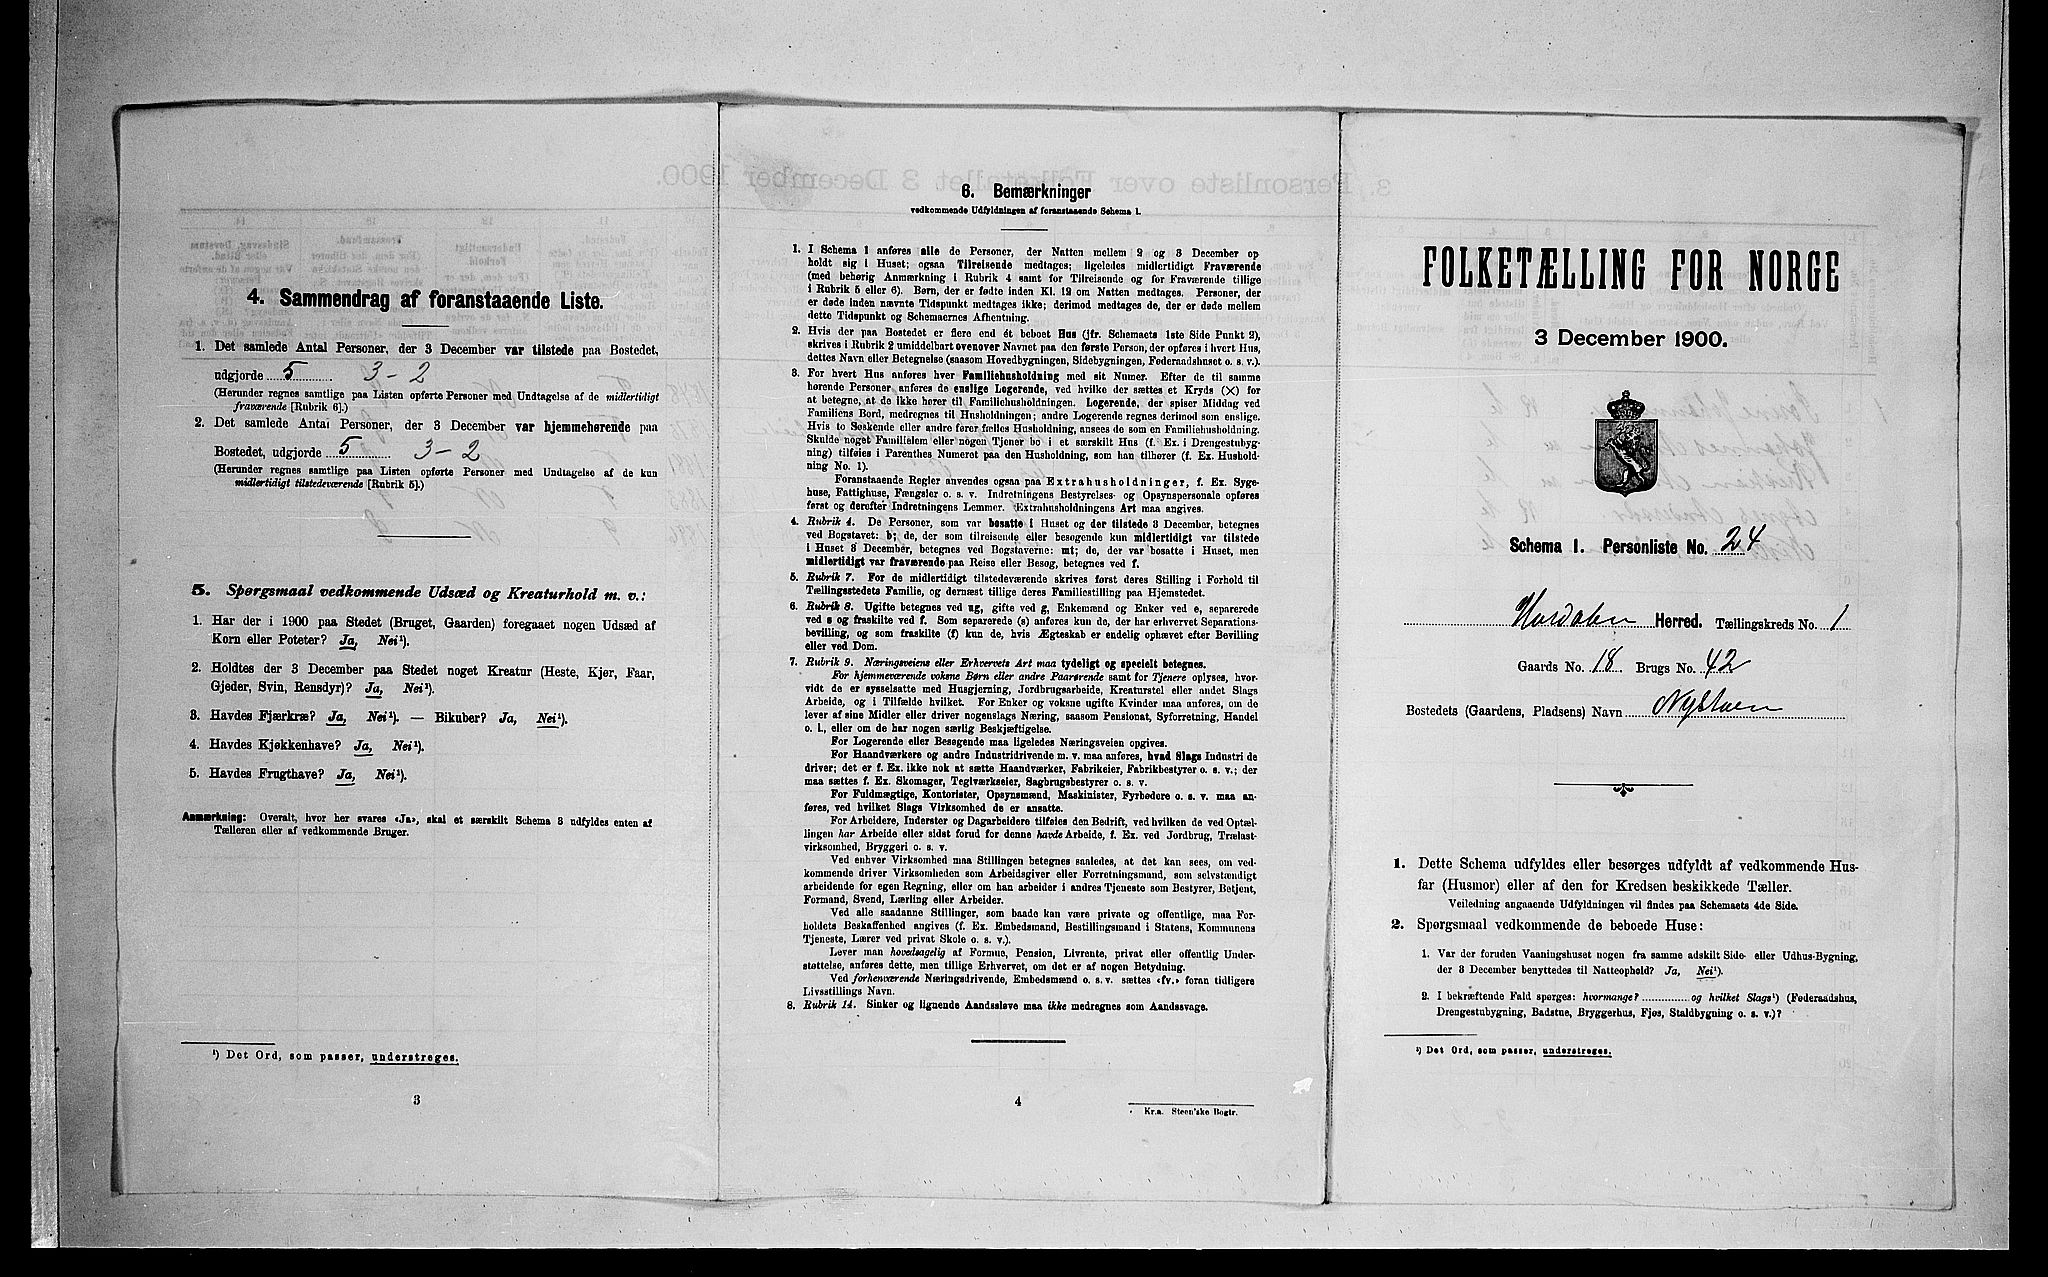 4. Sammendrag af foranstaaende Liste.
1. Det samlede Antal Personer, der 3 December var tilstede paa Bostedet,
udgjorde 5 3-2
(Herunder regnes samtlige paa Listen opførte Personer med Undtagelse af de midlertidigt
fraværende [Rubrik 6].)
2. Det samlede Antal Personer, der 3 December var hjemmehørende paa
Bostedet, udgjorde 5 3-2
(Herunder regnes samtlige paa Listen opførte Personer med Undtagelse af de kun
midlertidigt tilstedeværende [Rubrik 5].)
5. Spørgsmaal vedkommende Udsæd og Kreaturhold m. v.:
1. Har der i 1900 paa Stedet (Bruget, Gaarden) foregaaet nogen Udsæd af
Korn eller Poteter? Ja, Nei¹).
2. Holdtes der 3 December paa Stedet noget Kreatur (Heste, Kjør, Faar,
Gjeder, Svin, Rensdyr)? Ja, Nei¹).
3. Havdes Fjærkræ? Ja, Nei¹). — Bikuber? Ja, Nei¹).
4. Havdes Kjøkkenhave? Ja, Nei¹).
5. Havdes Frugthave? Ja, Nei¹).
Anmærkning: Overalt, hvor her svares «Ja», skal et særskilt Schema 3 udfyldes enten af
Tælleren eller af vedkommende Bruger.
¹) Det Ord, som passer, understreges.
3
6. Bemærkninger
vedkommende Udfyldningen af foranstaaende Schema 1.
1. I Schema 1 anføres alle de Personer, der Natten mellem 2 og 3 December op
holdt sig i Huset; ogsaa Tilreisende medtages; ligeledes midlertidigt Fraværende
(med behørig Anmærkning i Rubrik 4 samt for Tilreisende og for Fraværende tillige
i Rubrik 5 eller 6). Børn, der er fødte inden Kl. 12 om Natten medtages. Personer, der
er døde inden nævnte Tidspunkt medtages ikke; derimod medtages de, der er døde mellem
dette Tidspunkt og Schemaernes Afhentning.
2. Hvis der paa Bostedet er flere end ét beboet Hus (jfr. Schemaets 1ste Side Punkt 2),
skrives i Rubrik 2 umiddelbart ovenover Navnet paa den første Person, der opføres i hvert Hus,
dettes Navn eller Betegnelse (saasom Hovedbygningen, Sidebygningen, Føderaadshuset o. s. v.).
3. For hvert Hus anføres hver Familiehusholdning med sit Numer. Efter de til samme
hørende Personer anføres de enslige Logerende, ved hvilke der sættes et Kryds (×) for
at betegne, at de ikke hører til Familiehusholdningen. Logerende, der spiser Middag ved
Familiens Bord, medregnes til Husholdningen; andre Logerende regnes derimod som enslige.
Hvis to Søskende eller andre fører fælles Husholdning, ansees de som en Familiehusholdning.
Skulde noget Familielem eller nogen Tjener bo i et særskilt Hus (f. Ex. i Drengestubyg-
ning) tilføies i Parenthes Numeret paa den Husholdning, som han tilhører (f. Ex. Hushold-
ning No. 1).
Foranstaaende Regler anvendes ogsaa paa Extrahusholdninger, f. Ex. Syge-
huse, Fattighuse, Fængsler o. s. v. Indretningens Bestyrelses- og Opsynspersonale opføres
først og derefter Indretningens Lemmer. Extrahusholdningens Art maa angives.
4. Rubrik 4. De Personer, som var bosatte i Huset og der tilstede 3 December, betegnes
ved Bogstavet: b; de, der som tilreisende eller besøgende kun midlertidigt var tilstede
i Huset 3 December, betegnes ved Bogstaverne: mt; de, der var bosatte i Huset, men
midlertidigt var fraværende paa Reise eller Besøg, betegnes ved f.
5. Rubrik 7. For de midlertidigt tilstedeværende skrives først deres Stilling i Forhold til
Tællingsstedets Familie, og dernæst tillige deres Familiestilling paa Hjemstedet.
6. Rubrik 8. Ugifte betegnes ved ug, gifte ved g, Enkemænd og Enker ved e, separerede
ved s og fraskilte ved f. Som separerede (s) anføres kun de, der har erhvervet Separations-
bevilling, og som fraskilte (f) kun de, hvis Ægteskab er endelig ophævet efter Bevilling
eller ved Dom.
7. Rubrik 9. Næringsveiens eller Erhvervets Art maa tydeligt og specielt betegnes.
For hjemmeværende voksne Børn eller andre Paarørende samt for Tjenere oplyses, hvor-
vidt de er sysselsatte med Husgjerning, Jordbrugsarbeide, Kreaturstel eller andet Slags
Arbeide, og i Tilfælde hvilket. For Enker og voksne ugifte Kvinder maa anføres, om de
lever af sine Midler eller driver nogenslags Næring, saasom Pensionat, Syforretning, Handel
o. l., eller om de har nogen særlig Beskjæftigelse.
For Logerende eller Besøgende maa ligeledes Næringsveien opgives.
For Haandværkere og andre Industridrivende m. v. maa anføres, hvad Slags Industri de
driver; det er f. Ex. ikke nok at sætte Haandværker, Fabrikeier, Fabrikbestyrer o. s. v.; der
maa sættes f. Ex. Skomager, Teglværkseier, Sagbrugsbestyrer o. s. v.
For Fuldmægtige, Kontorister, Opsynsmænd, Maskinister, Fyrbødere o. s. v. maa an-
føres, ved hvilket Slags Virksomhed de er ansatte.
For Arbeidere, Inderster og Dagarbeidere tilføies den Bedrift, ved hvilken de ved Optæl-
lingen har Arbeide eller sidst forud for denne havde Arbeide, f. Ex. ved Jordbrug, Trælast-
virksomhed, Bryggeri o. s. v.
Ved enhver Virksomhed maa Stillingen betegnes saaledes, at det kan sees, om ved-
kommende driver Virksomheden som Arbeidsgiver eller Forretningsmand, som selvstændigt
arbeidende for egen Regning, eller om han arbeider i andres Tjeneste som Bestyrer, Betjent,
Formand, Svend, Lærling eller Arbeider.
Ved alle saadanne Stillinger, som baade kan være private og offentlige, maa For-
holdets Beskaffenhed angives (f. Ex. Embedsmand, Bestillingsmand i Statens, Kommunens
Tjeneste, Lærer ved privat Skole o. s. v.).
Lever man hovedsagelig af Formue, Pension, Livrente, privat eller offentlig Under-
støttelse, anføres dette, men tillige Erhvervet, om det er af nogen Betydning.
Ved forhenværende Næringsdrivende, Embedsmænd o. s. v. sættes «fv.» foran tidligere
Livsstillings Navn.
8. Rubrik 14. Sinker og lignende Aandssløve maa ikke medregnes som Aandssvage.
4
Kr.a. Steen'ske Bogtr.
FOLKETÆLLING FOR NORGE
3 December 1900.
Schema 1. Personliste No. 24
Hurdalen Herred. Tællingskreds No. 1
Gaards No. 18 Brugs No. 42
Bostedets (Gaardens, Pladsens) Navn Nystuen
1. Dette Schema udfyldes eller besørges udfyldt af vedkommende Hus-
far (Husmor) eller af den for Kredsen beskikkede Tæller.
Veiledning angaaende Udfyldningen vil findes paa Schemaets 4de Side.
2. Spørgsmaal vedkommende de beboede Huse:
1. Var der foruden Vaaningshuset nogen fra samme adskilt Side- eller Udhus-Bygning,
der 3 December benyttedes til Natteophold? Ja, Nei¹).
2. I bekræftende Fald spørges: hvormange? og hvilket Slags¹) (Føderaadshus,
Drengestubygning, Badstue, Bryggerhus, Fjøs, Staldbygning o. s. v.)?
¹) Det Ord, som passer, understreges.